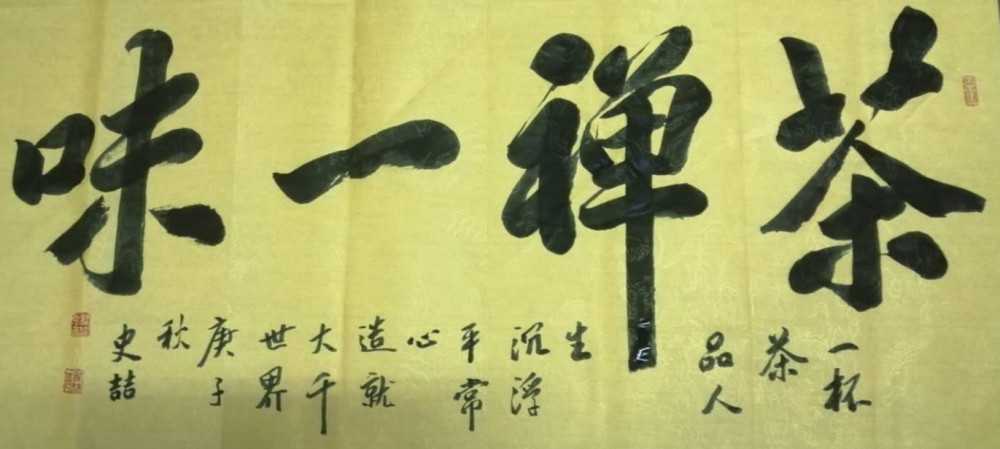 茶禅一味
一杯
茶
品人
生
沉浮
平常
心
造就
大千
世界
庚子
秋
史喆